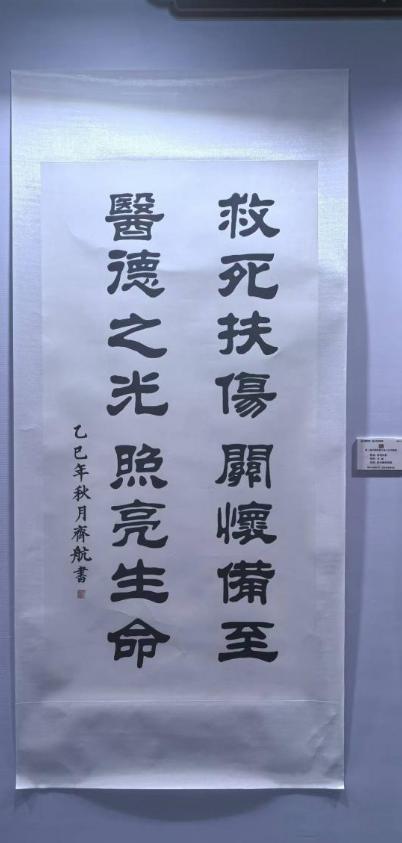 救死扶傷關懷備至
醫德之光照亮生命
乙巳年秋月齊航書